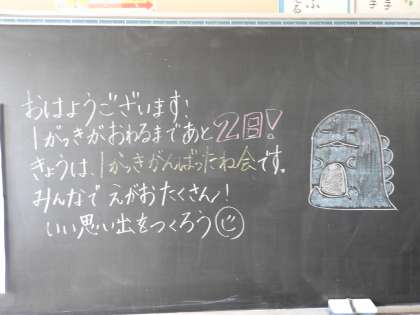 おはようございます!
1がっきがおわるまであと2日!
きょうは、1がっきがんばったね会です。
みんなで えがおたくさん!
いい思い出をつくろう